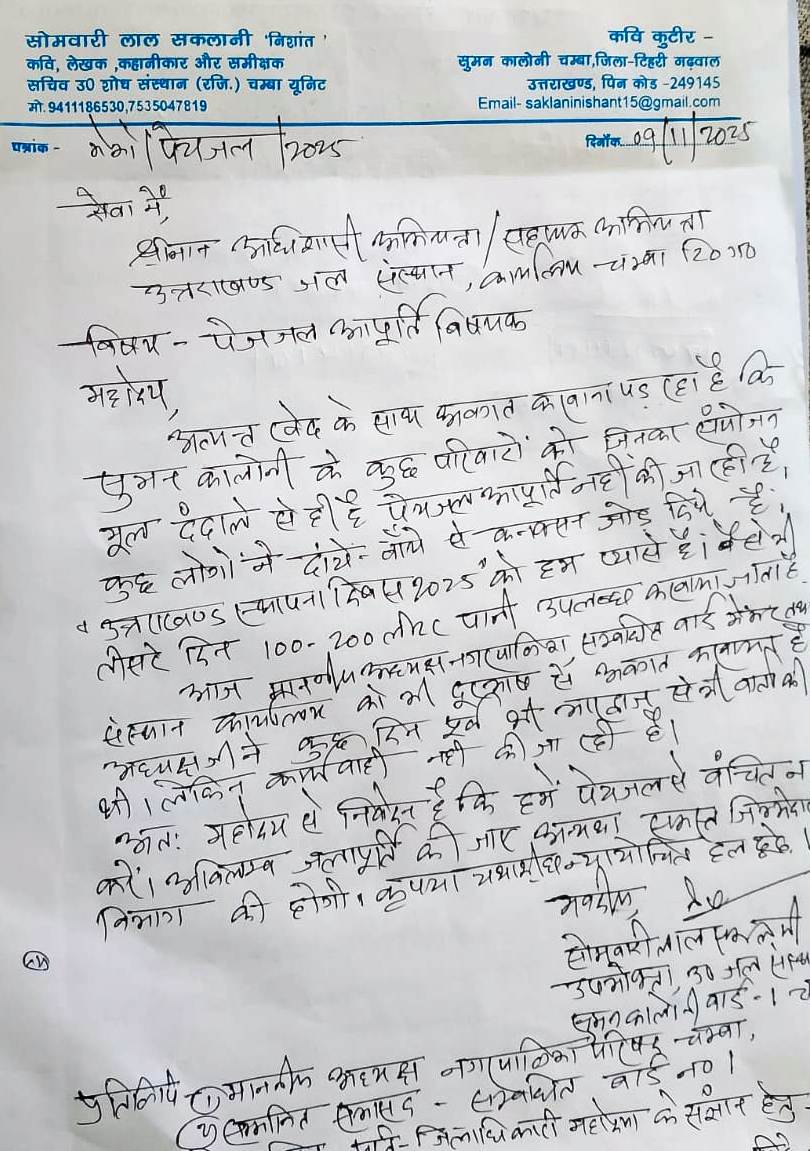 सोमवारी लाल सकलानी 'निशांत'
कवि, लेखक ,कहानीकार और समीक्षक
सचिव उ0 शोध संस्थान (रजि.) चम्बा यूनिट
मो. 9411186530,7535047819
कवि कुटीर –
सुमन कालोनी चम्बा,जिला-टिहरी गढ़वाल
उत्तराखण्ड, पिन कोड -249145
Email- saklaninishant15@gmail.com
पत्रांक - मेमो/पेयजल/2025
दिनाँक 09/11/2025
सेवा में,
श्रीमान अधिशासी अभियन्ता/सहायक अभियन्ता
उत्तराखण्ड जल संस्थान, कार्यालय - चम्बा टि0ग0
विषय - पेयजल आपूर्ति विषयक
महोदय,
अत्यन्त खेद के साथ अवगत करवाना पड़ रहा है कि
सुमन कालोनी के कुछ परिवारों को जिनका संयोजन
मूल टंटाले से ही है पेयजल आपूर्ति नहीं की जा रही है।
कुछ लोगों ने दांये-बाँये से कनक्सन जोड़ दिये हैं।
"उत्तराखण्ड स्थापना दिवस 2025" को हम प्यासे हैं। वैसे भी
तीसरे दिन 100-200 लीटर पानी उपलब्ध करवाया जाता है।
आज माननीय अध्यक्ष नगरपालिका सम्बन्धित वार्ड मेम्बर तथा
संस्थान कार्यालय को भी दूरभाष से अवगत करवाया है
अध्यक्ष जी ने कुछ दिन पूर्व भी भारद्वाज से भी वार्ता की
थी। लेकिन कार्यवाही नहीं की जा रही है।
अतः महोदय से निवेदन है कि हमें पेयजल से वंचित न
करें। अविलम्ब जलापूर्ति की जाए अन्यथा समस्त जिम्मेदा
विभाग की होगी। कृपया यथाशीघ्र न्यायोचित हल ढूंढे।
भवदीय,
सोमवारी लाल सकलानी
उपभोक्ता, उ0 जल संस्थ
सुमन कालोनी वार्ड-1 च
प्रतिलिपि - (1) माननीय अध्यक्ष नगरपालिका परिषद चम्बा,
(2) सम्मानित सभासद - सम्बन्धित वार्ड न0 1
प्रति- जिलाधिकारी महोदया के संज्ञान हेतु -